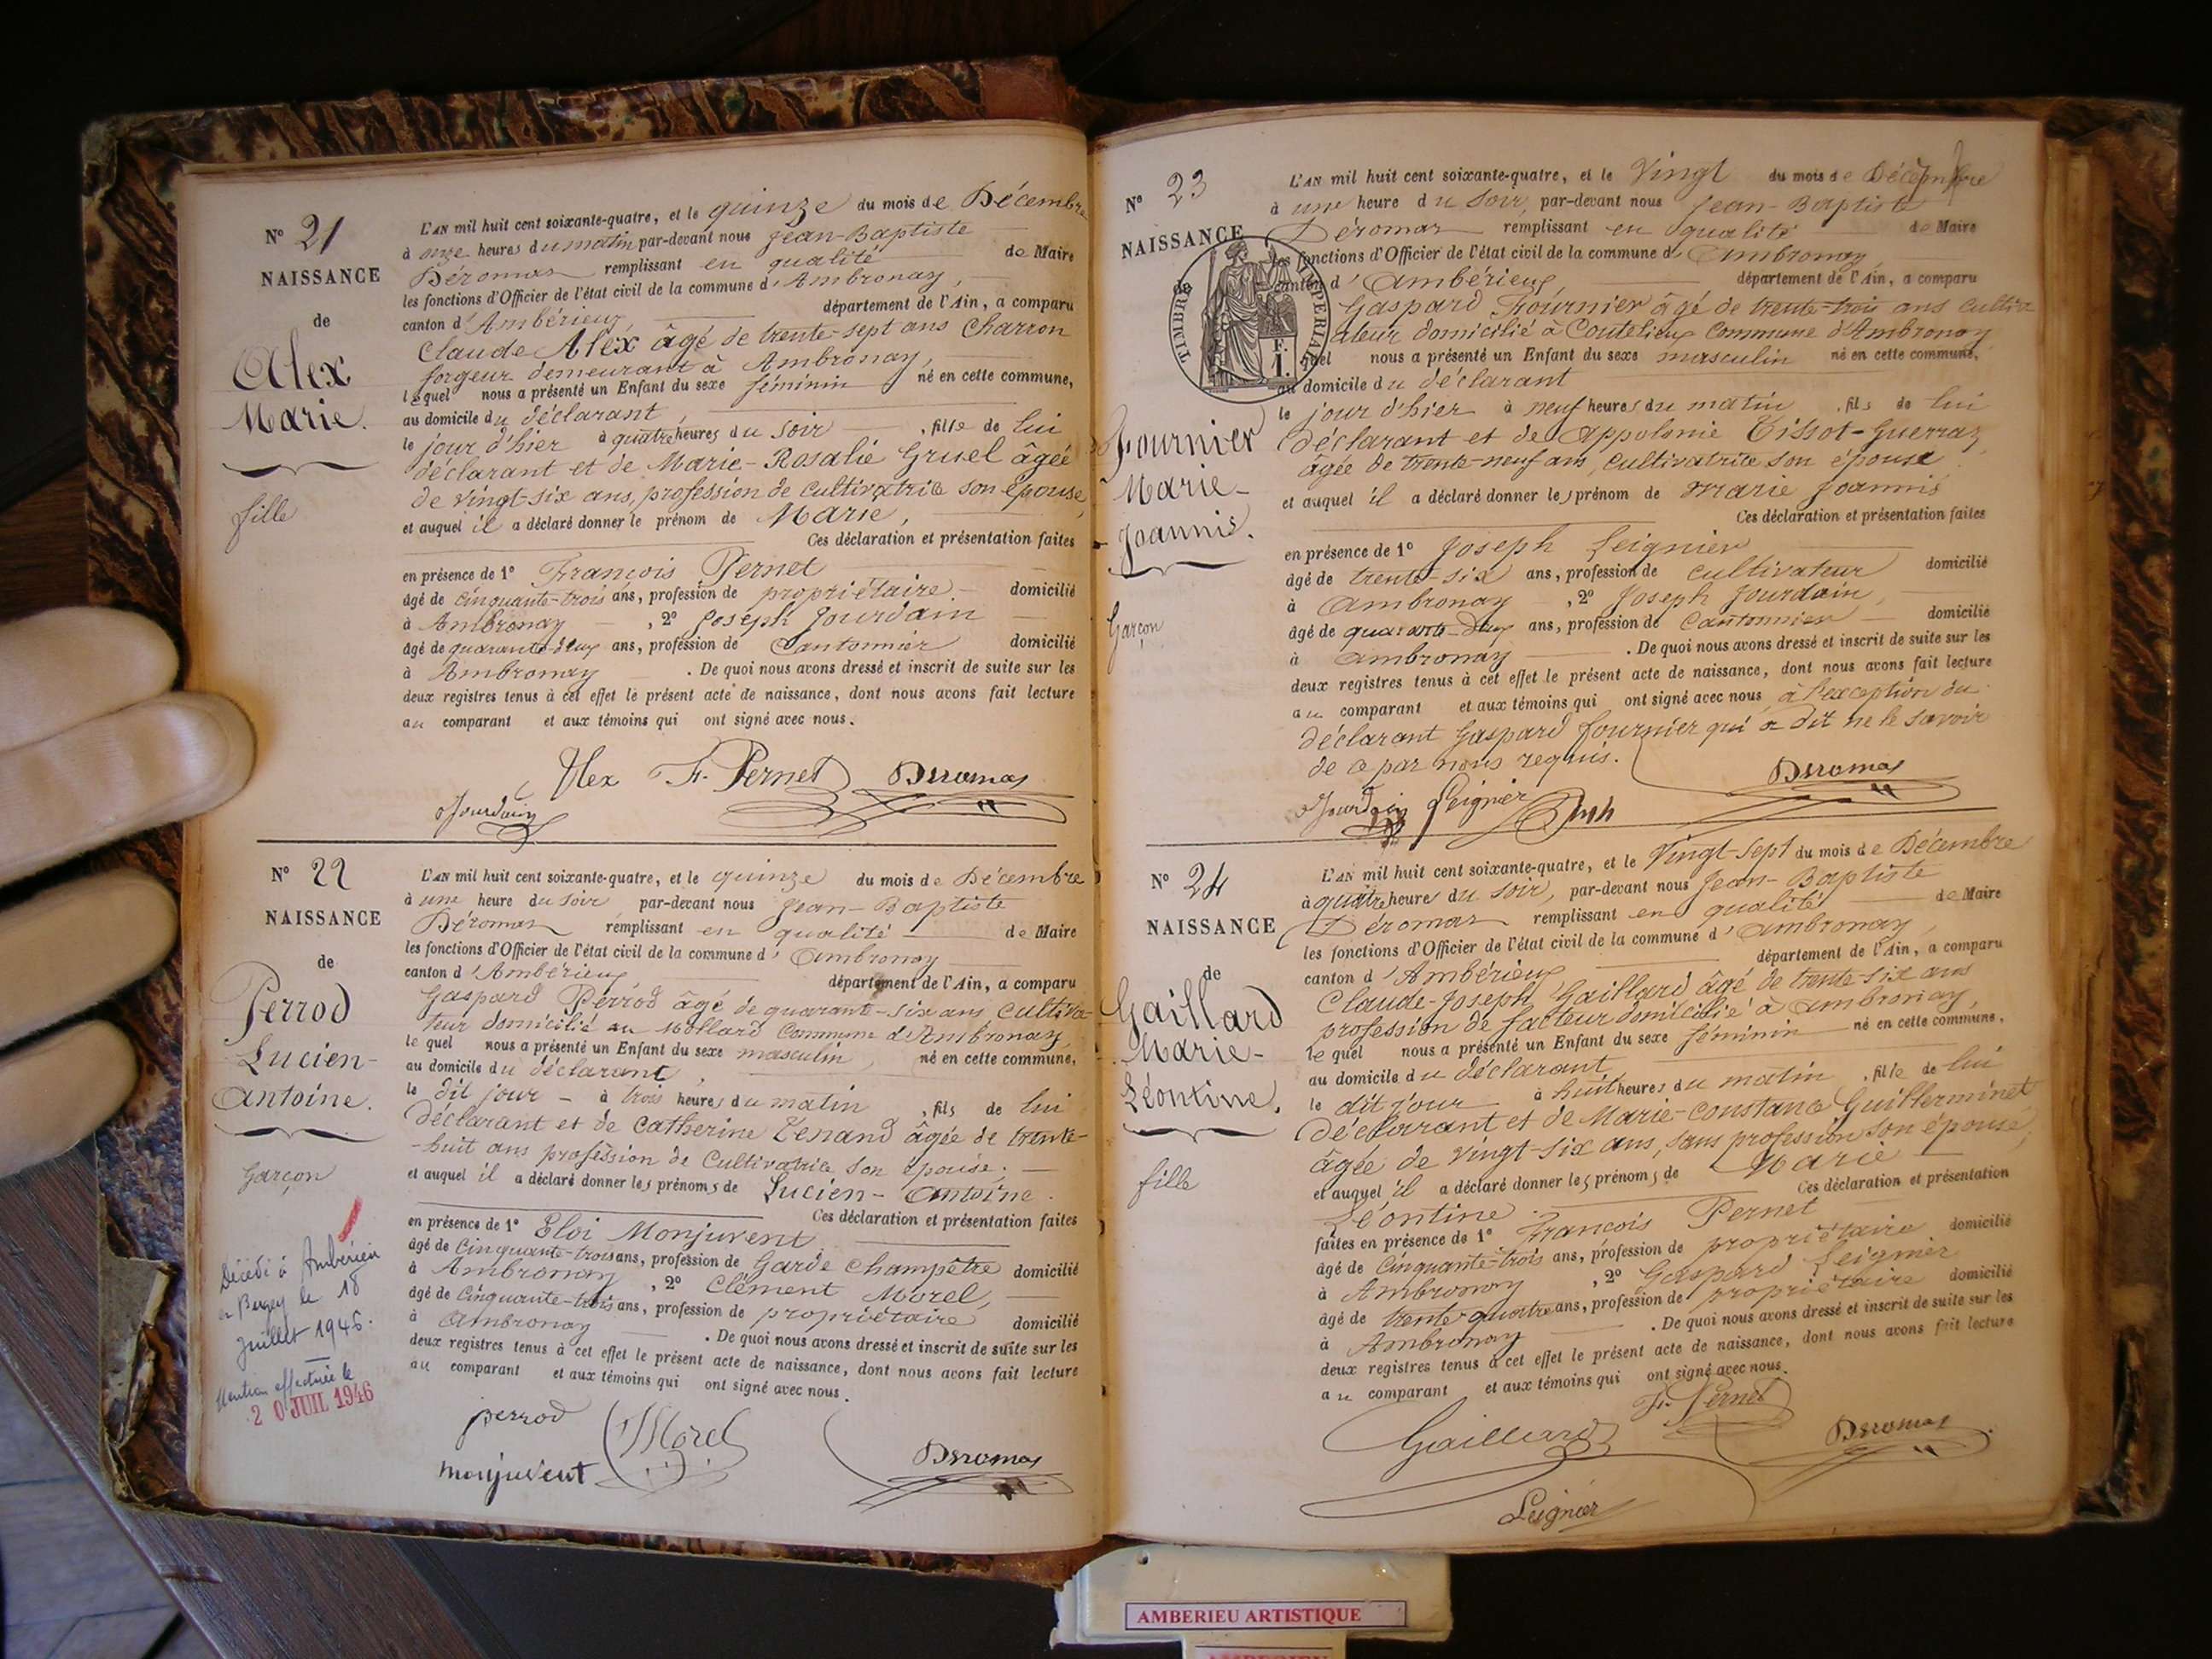 N° 21
NAISSANCE
de
Alex
Marie.
fille
L'AN mil huit cent soixante-quatre, et le quinze du mois de Décembre
à onze heures du matin par-devant nous Jean-Baptiste
Déromas remplissant en qualité de Maire
les fonctions d'Officier de l'état civil de la commune d'Ambronay,
canton d'Ambérieux, département de l'Ain, a comparu
Claude Alex âgé de trente-sept ans Charron
forgeur demeurant à Ambronay,
lequel nous a présenté un Enfant du sexe féminin né en cette commune,
au domicile du déclarant,
le jour d'hier à quatre heures du soir, fille de lui
déclarant et de Marie-Rosalie Gruel âgée
de vingt-six ans, profession de cultivatrice son épouse,
et auquel il a déclaré donner le prénom de Marie,
Ces déclaration et présentation faites
en présence de 1° François Pernet
âgé de cinquante-trois ans, profession de propriétaire domicilié
à Ambronay, 2° Joseph Jourdain
âgé de quarante-deux ans, profession de Cantonnier domicilié
à Ambronay. De quoi nous avons dressé et inscrit de suite sur les
deux registres tenus à cet effet le présent acte de naissance, dont nous avons fait lecture
au comparant et aux témoins qui ont signé avec nous.
Alex F. Pernet Déromas
Jourdain
N° 22
NAISSANCE
de
Perrod
Lucien-
Antoine.
Garçon
Décédé à Ambérieu
en Bugey le 18
Juillet 1946.
Mention effectuée le
20 JUIL 1946
L'AN mil huit cent soixante-quatre, et le quinze du mois de Décembre
à une heure du soir par-devant nous Jean-Baptiste
Déromas remplissant en qualité de Maire
les fonctions d'Officier de l'état civil de la commune d'Ambronay
canton d'Ambérieux département de l'Ain, a comparu
Gaspard Perrod âgé de quarante-six ans cultiva-
teur domicilié au Mollard Commune d'Ambronay,
lequel nous a présenté un Enfant du sexe masculin, né en cette commune,
au domicile du déclarant,
le dit jour - à trois heures du matin, fils de lui
déclarant et de Catherine Tenand âgée de trente-
-huit ans profession de Cultivatrice son épouse.
et auquel il a déclaré donner les prénoms de Lucien-Antoine.
Ces déclaration et présentation faites
en présence de 1° Eloi Monjuvent
âgé de Cinquante-trois ans, profession de Garde Champêtre domicilié
à Ambronay, 2° Clément Morel,
âgé de Cinquante-trois ans, profession de propriétaire domicilié
à Ambronay. De quoi nous avons dressé et inscrit de suite sur les
deux registres tenus à cet effet le présent acte de naissance, dont nous avons fait lecture
au comparant et aux témoins qui ont signé avec nous.
perrod Morel
monjuvent Déromas
N° 23
NAISSANCE
TIMBRE IMPERIAL
F.
1.
Fournier
Marie-
Joannis.
Garçon
L'AN mil huit cent soixante-quatre, et le Vingt du mois de Décembre
à une heure du soir, par-devant nous Jean-Baptiste
Déromas remplissant en qualité de Maire
les fonctions d'Officier de l'état civil de la commune d'Ambronay
canton d'Ambérieux, département de l'Ain, a comparu
Gaspard Fournier âgé de trente-trois ans cultiv
ateur domicilié à Coutelieux Commune d'Ambronay
quel nous a présenté un Enfant du sexe masculin né en cette commune,
au domicile du déclarant
le jour d'hier à neuf heures du matin, fils de lui
déclarant et de Appolonie Tissot-Guerraz
âgée de trente-neuf ans, cultivatrice son épouse
et auquel il a déclaré donner les prénom de Marie Joannis
Ces déclaration et présentation faites
en présence de 1° Joseph Leignier
âgé de trente-six ans, profession de cultivateur domicilié
à Ambronay, 2° Joseph Jourdain,
âgé de quarante-deux ans, profession de Cantonnier domicilié
à Ambronay. De quoi nous avons dressé et inscrit de suite sur les
deux registres tenus à cet effet le présent acte de naissance, dont nous avons fait lecture
au comparant et aux témoins qui ont signé avec nous à l'exception du
déclarant Gaspard Fournier qui a dit ne le savoir
de ce par nous requis.
Déromas
Jourdain Leignier
N° 24
NAISSANCE
de
Gaillard
Marie-
Léontine.
fille
L'AN mil huit cent soixante-quatre, et le Vingt-sept du mois de Décembre
à quatre heures du soir, par-devant nous Jean-Baptiste
Déromas remplissant en qualité de Maire
les fonctions d'Officier de l'état civil de la commune d'Ambronay,
canton d'Ambérieux département de l'Ain, a comparu
Claude-Joseph Gaillard âgé de trente-six ans
profession de facteur domicilié à Ambronay,
lequel nous a présenté un Enfant du sexe féminin né en cette commune,
au domicile du déclarant
le dit jour à huit heures du matin, fille de lui
déclarant et de Marie-Constance Guillerminet
âgée de vingt-six ans, sans profession son épouse,
et auquel il a déclaré donner les prénoms de Marie
Léontine. Ces déclaration et présentation
faites en présence de 1° François Pernet
âgé de Cinquante-trois ans, profession de propriétaire domicilié
à Ambronay, 2° Gaspard Leignier
âgé de trente-quatre ans, profession de propriétaire domicilié
à Ambronay. De quoi nous avons dressé et inscrit de suite sur les
deux registres tenus à cet effet le présent acte de naissance, dont nous avons fait lecture
au comparant et aux témoins qui ont signé avec nous.
F. Pernet
Gailliard Déromas
Leignier
AMBERIEU ARTISTIQUE
AMBERIEU